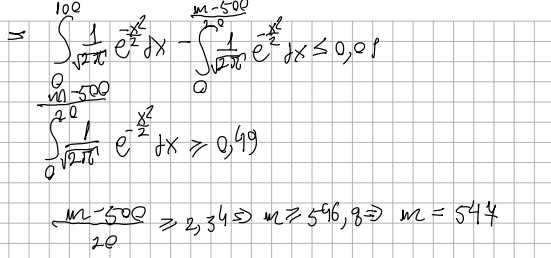 = ∫₀¹⁰⁰ 1/√2π e^(-x²/2) dx - ∫₀^((m-500)/20) 1/√2π e^(-x²/2) dx ≤ 0,01
∫₀^((m-500)/20) 1/√2π e^(-x²/2) dx ≥ 0,49
(m-500)/20 ≥ 2,34 ⇒ m ≥ 546,8 ⇒ m = 547